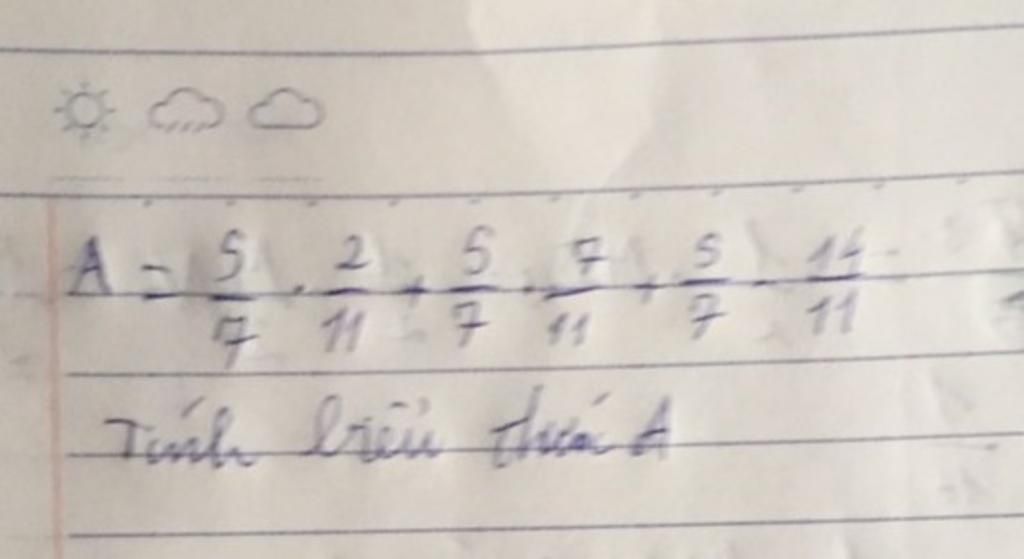 A = 5/7 . 2/11 + 5/7 . 7/11 + 5/7 . 14/11
Tính biểu thức A